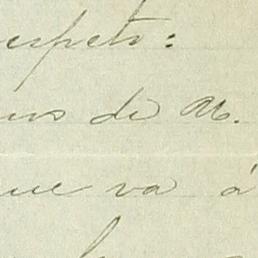 espeto:
us de M.
ue va á